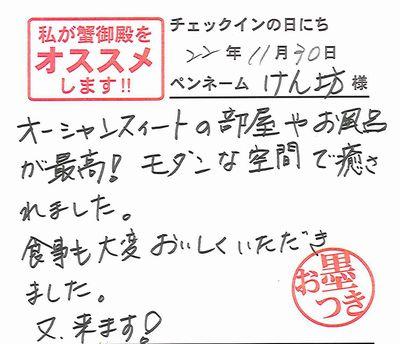 私が蟹御殿を
オススメ
します!!
チェックインの日にち
22年11月30日
ペンネーム けん坊 様
オーシャンスィートの部屋やお風呂
が最高! モダンな空間で癒さ
れました。
食事も大変おいしくいただき
ました。
又、来ます!
お墨
つき